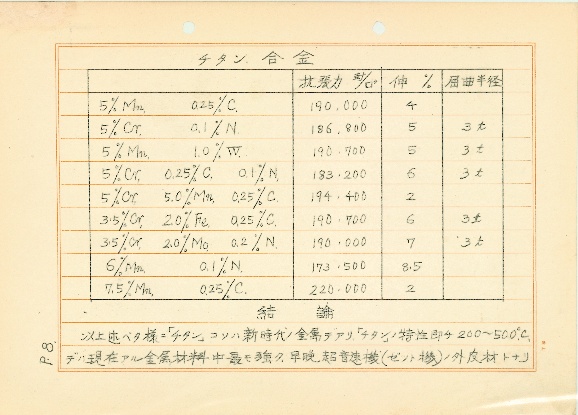 チタン 合金
抗張力 封/□" 伸 % 屈曲半径
5% Mn. 0.25% C. 190,000 4
5% Cr. 0.1% N. 186,800 5 3t
5% Mn. 1.0% W. 190,700 5 3t
5% Cr. 0.25% C. 0.1% N. 183,200 6 3t
5% Cr. 5.0% Mn. 0.25% C. 194,400 2
3.5% Cr. 2.0% Fe. 0.25% C. 190,700 6 3t
3.5% Cr. 2.0% Mo. 0.2% N. 190,000 7 3t
6% Mn. 0.1% N. 173,500 8.5
7.5% Mn. 0.25% C. 220,000 2
結論
以上述ベタ様ニ「チタン」コソハ新時代ノ金属デアリ「チタン」ノ特性即チ200~500℃.
デハ現在アル金属材料中最モ強ク、早晩超音速機(ゼット機)ノ外皮材トナリ
P.8.